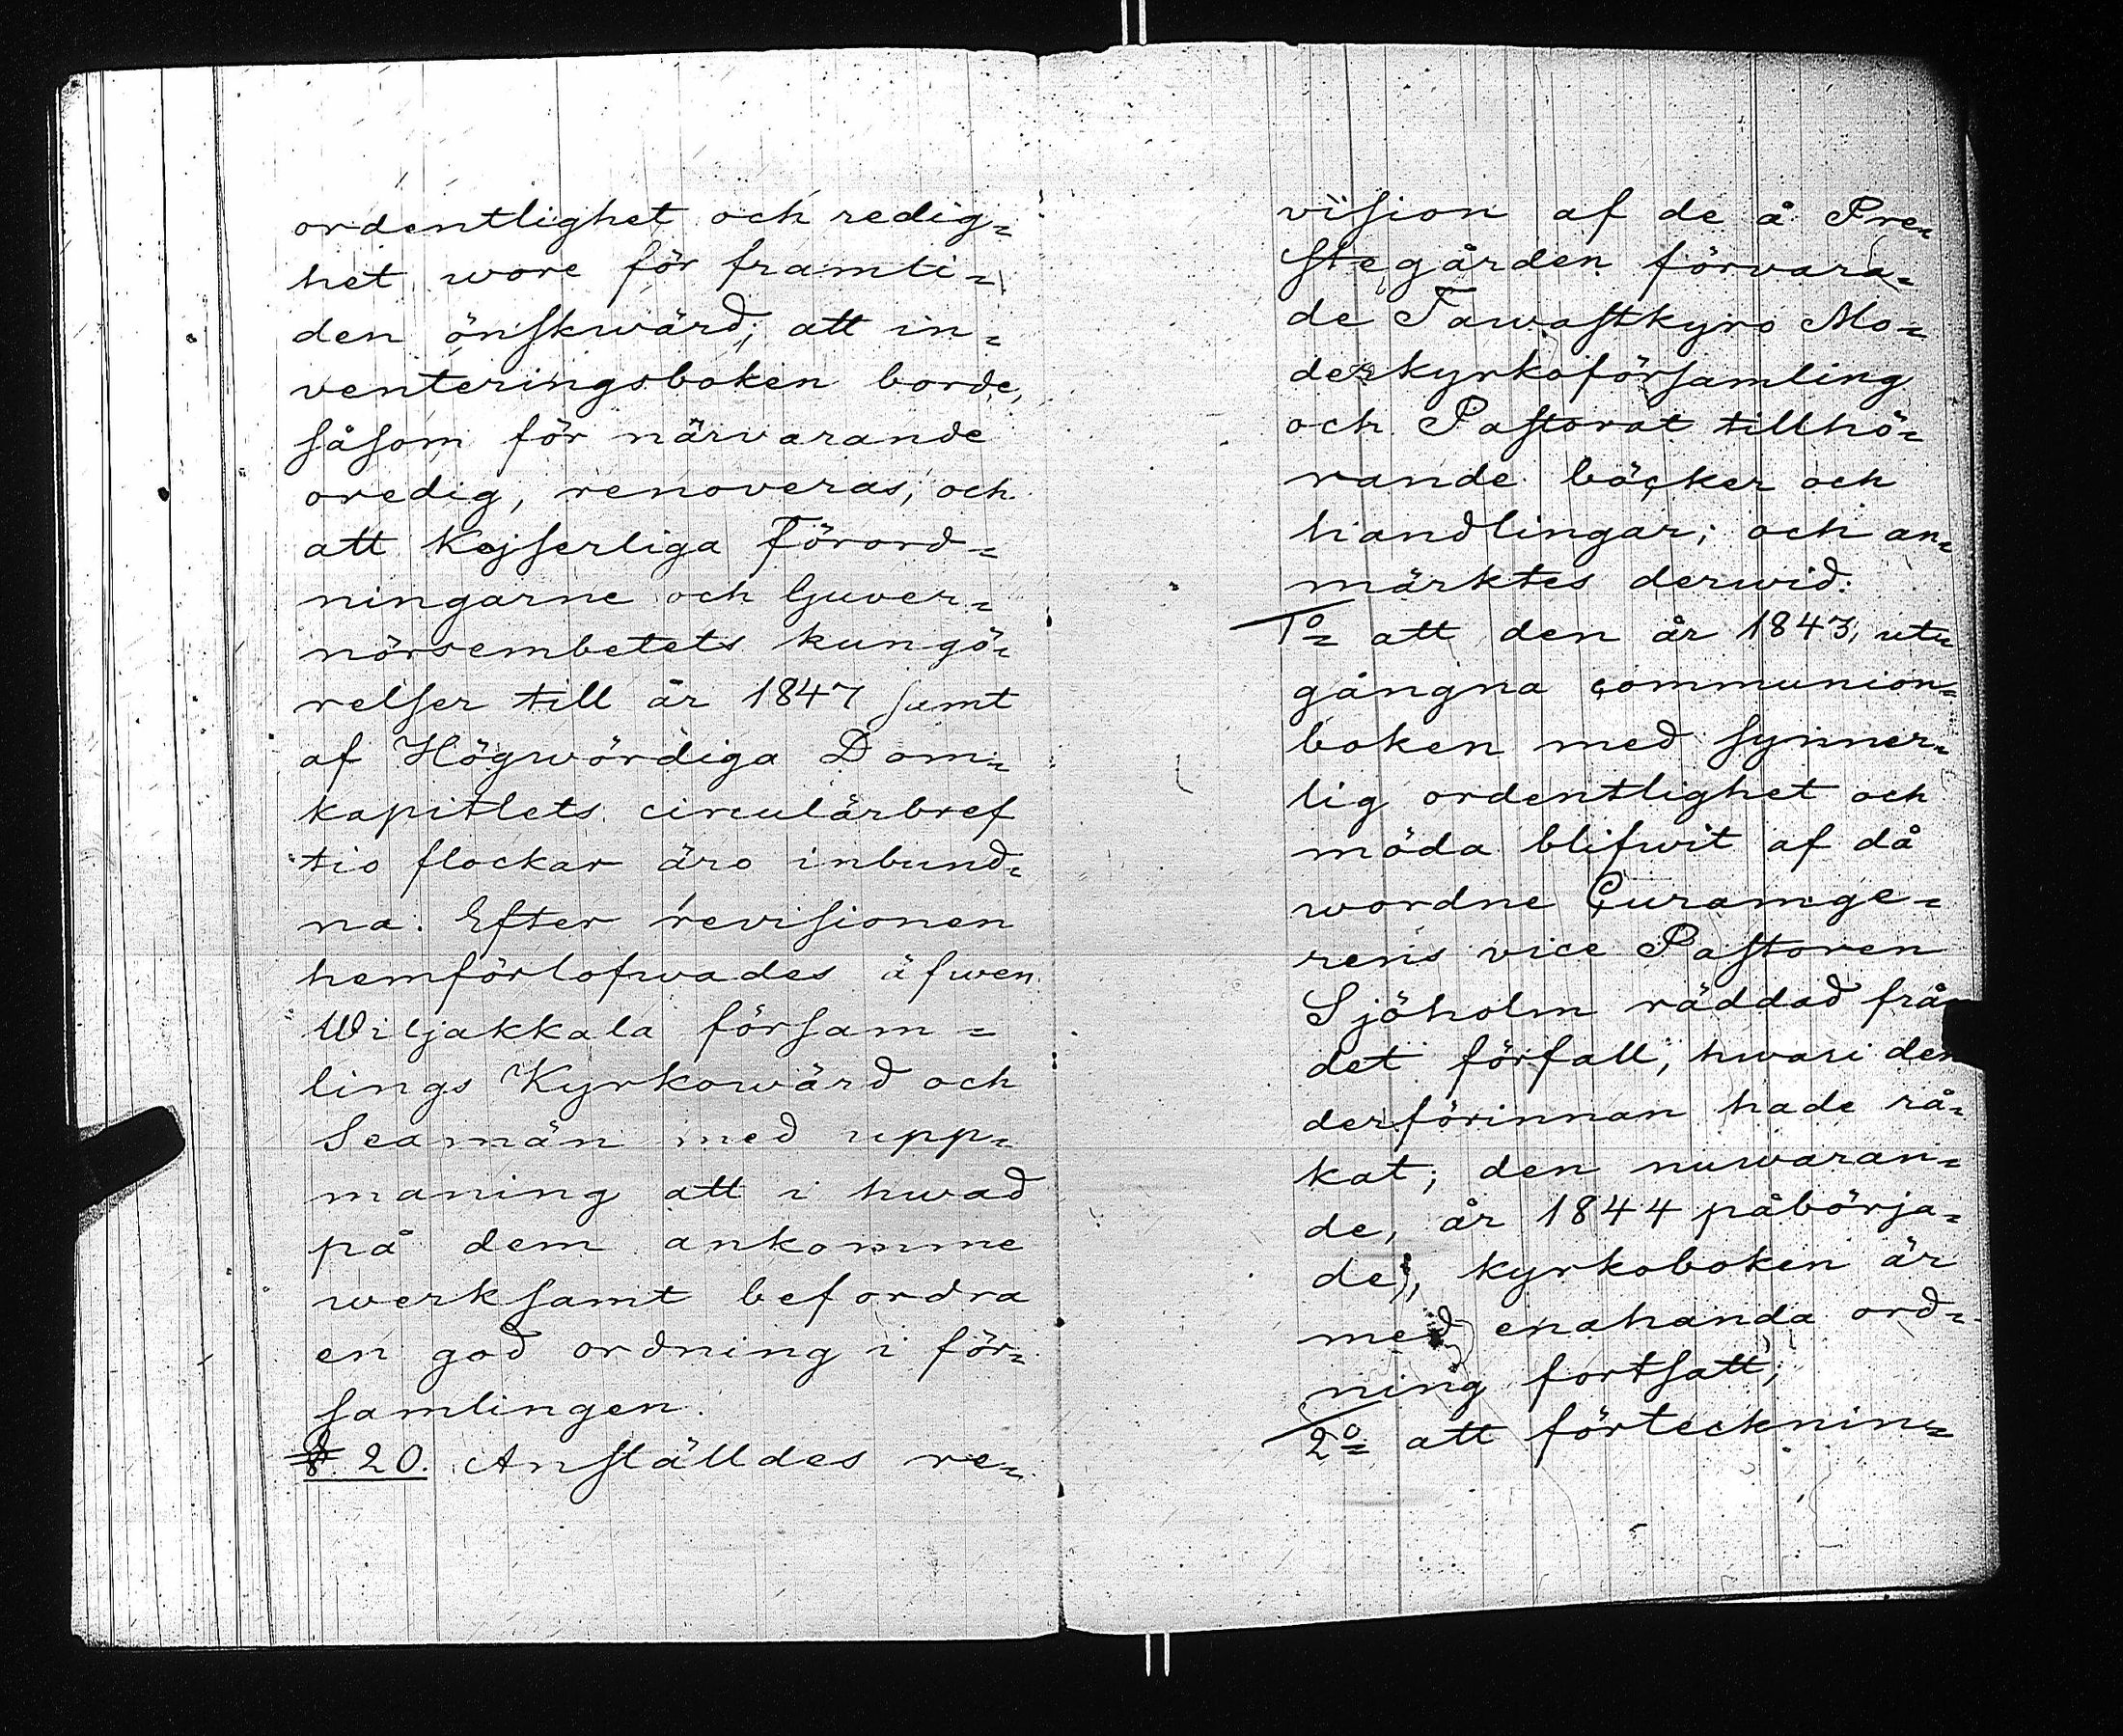 ordentlighet och redig=
het wore för framti=
den önskwärd; att in=
venteringsboken borde,
såsom för närvarande
oredig, renoveras; och
att Kejserliga Förord=
ningarne och Guver=
nörsembetets kungö=
relser till år 1847 samt
af Högwördiga Dom=
kapitlets circulärbref
tio flockar äro inbund=
na. Efter revisionen
hemförlofwades äfwen
Wiljakkala försam=
lings Kyrkowärd och
Sexmän med upp=
maning att i hwad
på dem ankomme
werksamt befordra
en god ordning i för=
samlingen.
§ 20. Anställdes re=
vision af de å Pre=
stegården förvara=
de Tawastkyro Mo=
derkyrkoförsamling
och Pastorat tillhö=
rande böcker och
handlingar; och an=
märktes derwid:
1o= att den år 1843, ut=
gångna communion=
boken med synner=
lig ordentlighet och
möda blifwit af då
wordne Curamge=
rens vice Pastoren
Sjöholm räddad från
det förfall, hwari den
derförinnan hade rå=
kat; den nuwaran=
de, år 1844 påbörja=
de, kyrkoboken är
med enahanda ord=
ning fortsatt;
2o= att förtecknin=